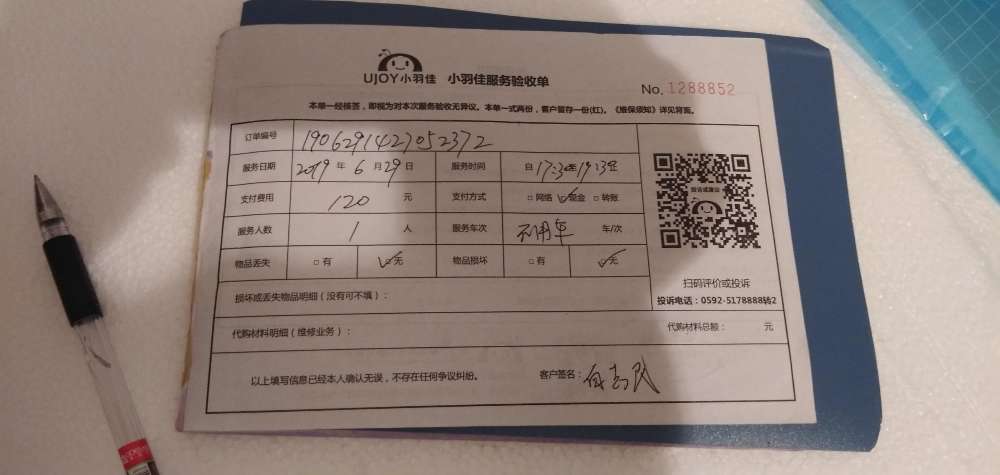 UJOY小羽佳 小羽佳服务验收单
No. 1288852
本单一经接签，即视为对本次服务验收无异议。本单一式两份，客户留存一份(红)。《维保须知》详见背面。
订单编号 1906291427052372
服务日期 2019 年 6 月 29 日 服务时间 自 17:30 至 19:30
支付费用 120 元 支付方式 □网络 ☑现金 □转账
服务人数 1 人 服务车次 不用车 车/次
物品丢失 □有 ☑无 物品损坏 □有 ☑无
投诉或建议
扫码评价或投诉
投诉电话：0592-5178888转2
损坏或丢失物品明细（没有可不填）：
代购材料明细（维修业务）： 代购材料总额： 元
以上填写信息已经本人确认无误，不存在任何争议纠纷。 客户签名：